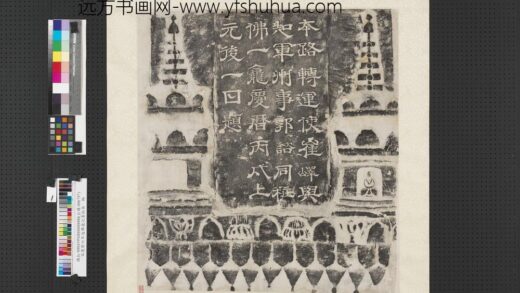 远方书画网-www.yfshuhua.com
本路轉運使崔嶧與
知軍州事郭諮同
佛一龕慶曆丙戌上
元後一日